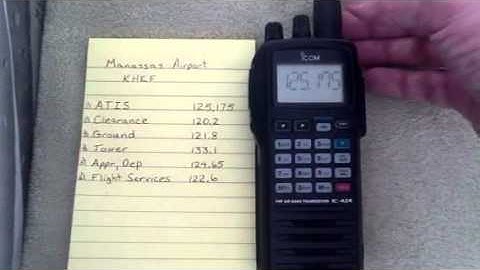 Manassas Airport
KHEF
ATIS 125.175
Clearance 120.2
Ground 121.8
Tower 133.1
Appr, Dep 124.65
Flight Services 122.6
ICOM
125.175
VHF AIR BAND TRANSCEIVER IC-A24